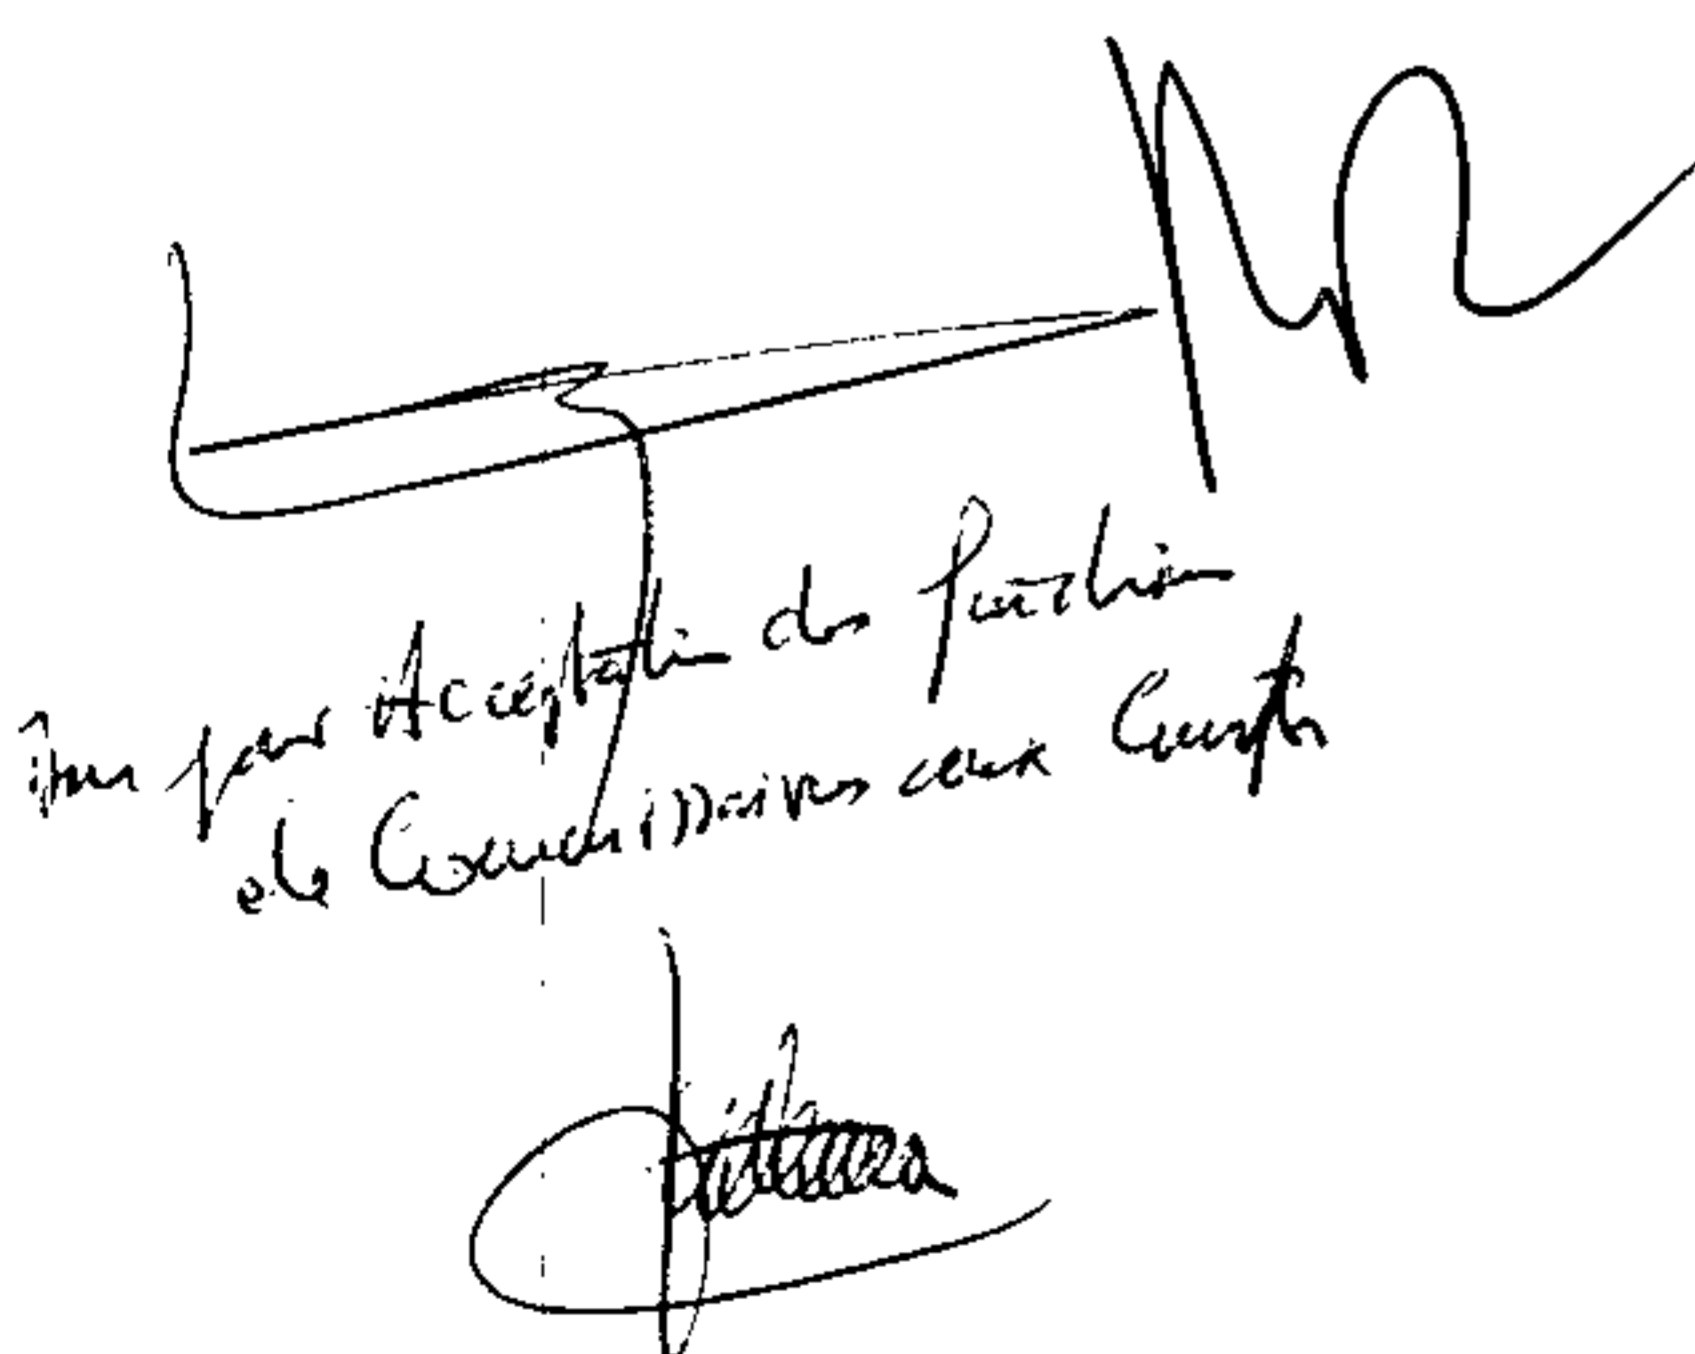 Bon pour Acceptation des fonctions
de Commissaires aux Comptes